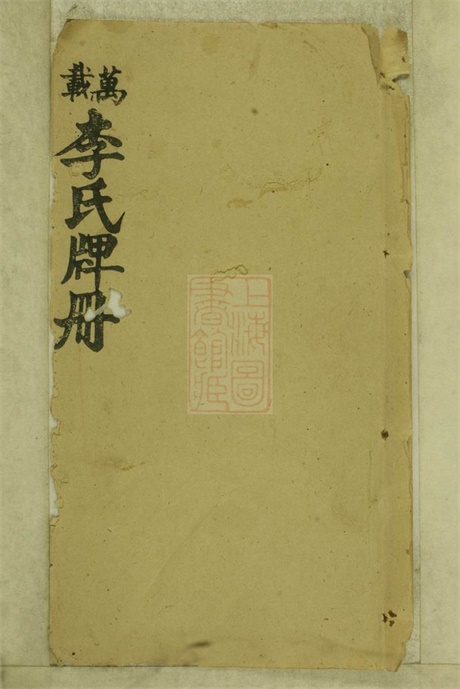 萬載
李氏牌冊
上海圖
書館藏